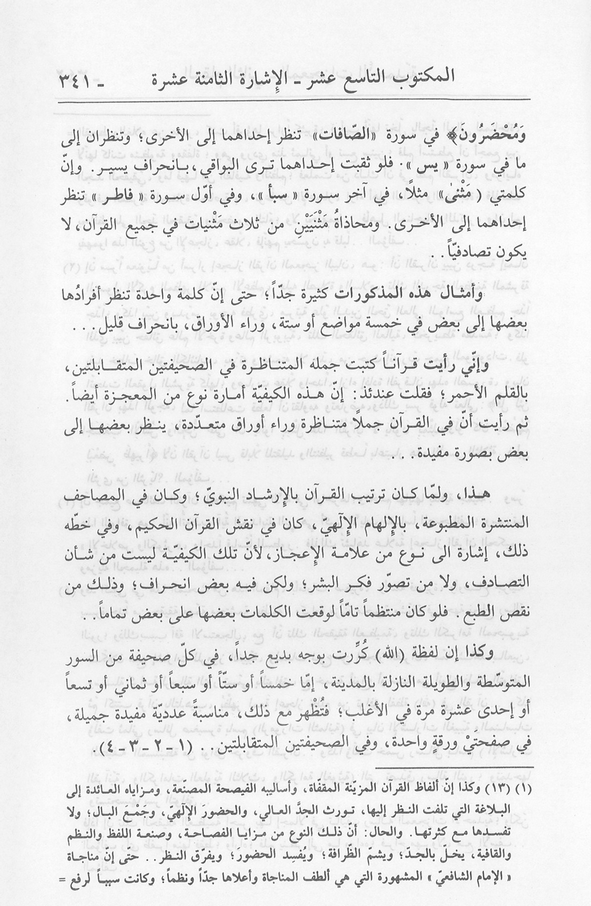 المكتوب التاسع عشر ـ الإشارة الثامنة عشرة ـ ٣٤١
وَمُحْضَرُونَ﴾ في سورة «الصّافات» تنظر إحداهما إلى الأخرى؛ وتنظران إلى
ما في سورة «يس». فلو ثقبت إحداهما ترى البواقي، بانحراف يسير. وإنّ
كلمتي (مَثْنىٰ) مثلًا، في آخر سورة «سبأ»، وفي أوّل سورة «فاطر» تنظر
إحداهما إلى الأخرى. ومحاذاةُ مَثْنَيَيْنِ من ثلاث مَثْنيات في جميع القرآن، لا
يكون تصادفيّاً..
وأمثال هذه المذكورات كثيرة جدّاً؛ حتى إنّ كلمة واحدة تنظر أفرادُها
بعضها إلى بعض في خمسة مواضع أو ستة، وراء الأوراق، بانحراف قليل...
وإنّي رأيت قرآناً كتبت جمله المتناظرة في الصحيفتين المتقابلتين،
بالقلم الأحمر؛ فقلت عندئذ: إنّ هذه الكيفيّة أمارة نوع من المعجزة أيضاً.
ثم رأيت أنّ في القرآن جملًا متناظرة وراء أوراق متعدّدة، ينظر بعضها إلى
بعض بصورة مفيدة...
هذا، ولمّا كان ترتيب القرآن بالإرشاد النبويّ؛ وكان في المصاحف
المنتشرة المطبوعة، بالإلهام الإلهيّ، كان في نقش القرآن الحكيم، وفي خطّه
ذلك، إشارة الى نوع من علامة الإعجاز، لأنّ تلك الكيفيّة ليست من شأن
التصادف، ولا من تصوّر فكر البشر؛ ولكن فيه بعض انحراف؛ وذلك من
نقص الطبع. فلو كان منتظماً تامّاً لوقعت الكلمات بعضها على بعض تماماً..
وكذا إن لفظة (الله) كُرِّرت بوجه بديع جداً، في كلّ صحيفة من السور
المتوسّطة والطويلة النازلة بالمدينة، إمّا خمساً أو ستّاً أو سبعاً أو ثماني أو تسعاً
أو إحدى عشرة مرة في الأغلب؛ فتُظْهر مع ذلك، مناسبةً عدديّة مفيدة جميلة،
في صفحتَيْ ورقةٍ واحدة، وفي الصحيفتين المتقابلتين.. (١-٢-٣-٤).
(١) (١٣) وكذا إنّ ألفاظ القرآن المزيّنة المقفّاة، وأساليبه الفيصحة المصنعة، ومزاياه العائدة إلى
البلاغة التي تلفت النظر إليها، تورث الجدّ العالي، والحضورَ الإلهيّ، وجَمْعَ البال؛ ولا
تفسدها مع كثرتها. والحال: أنّ ذلك النوع من مزايا الفصاحة، وصنعة اللفظ والنظم
والقافية، يخلّ بالجدّ؛ ويشمّ الظّرافة؛ ويُفسِد الحضورَ؛ ويفرّق النظر.. حتى إنّ مناجاة
«الإمام الشافعيّ» المشهورة التي هي ألطف المناجاة وأعلاها جدّاً ونظماً؛ وكانت سبباً لرفع =